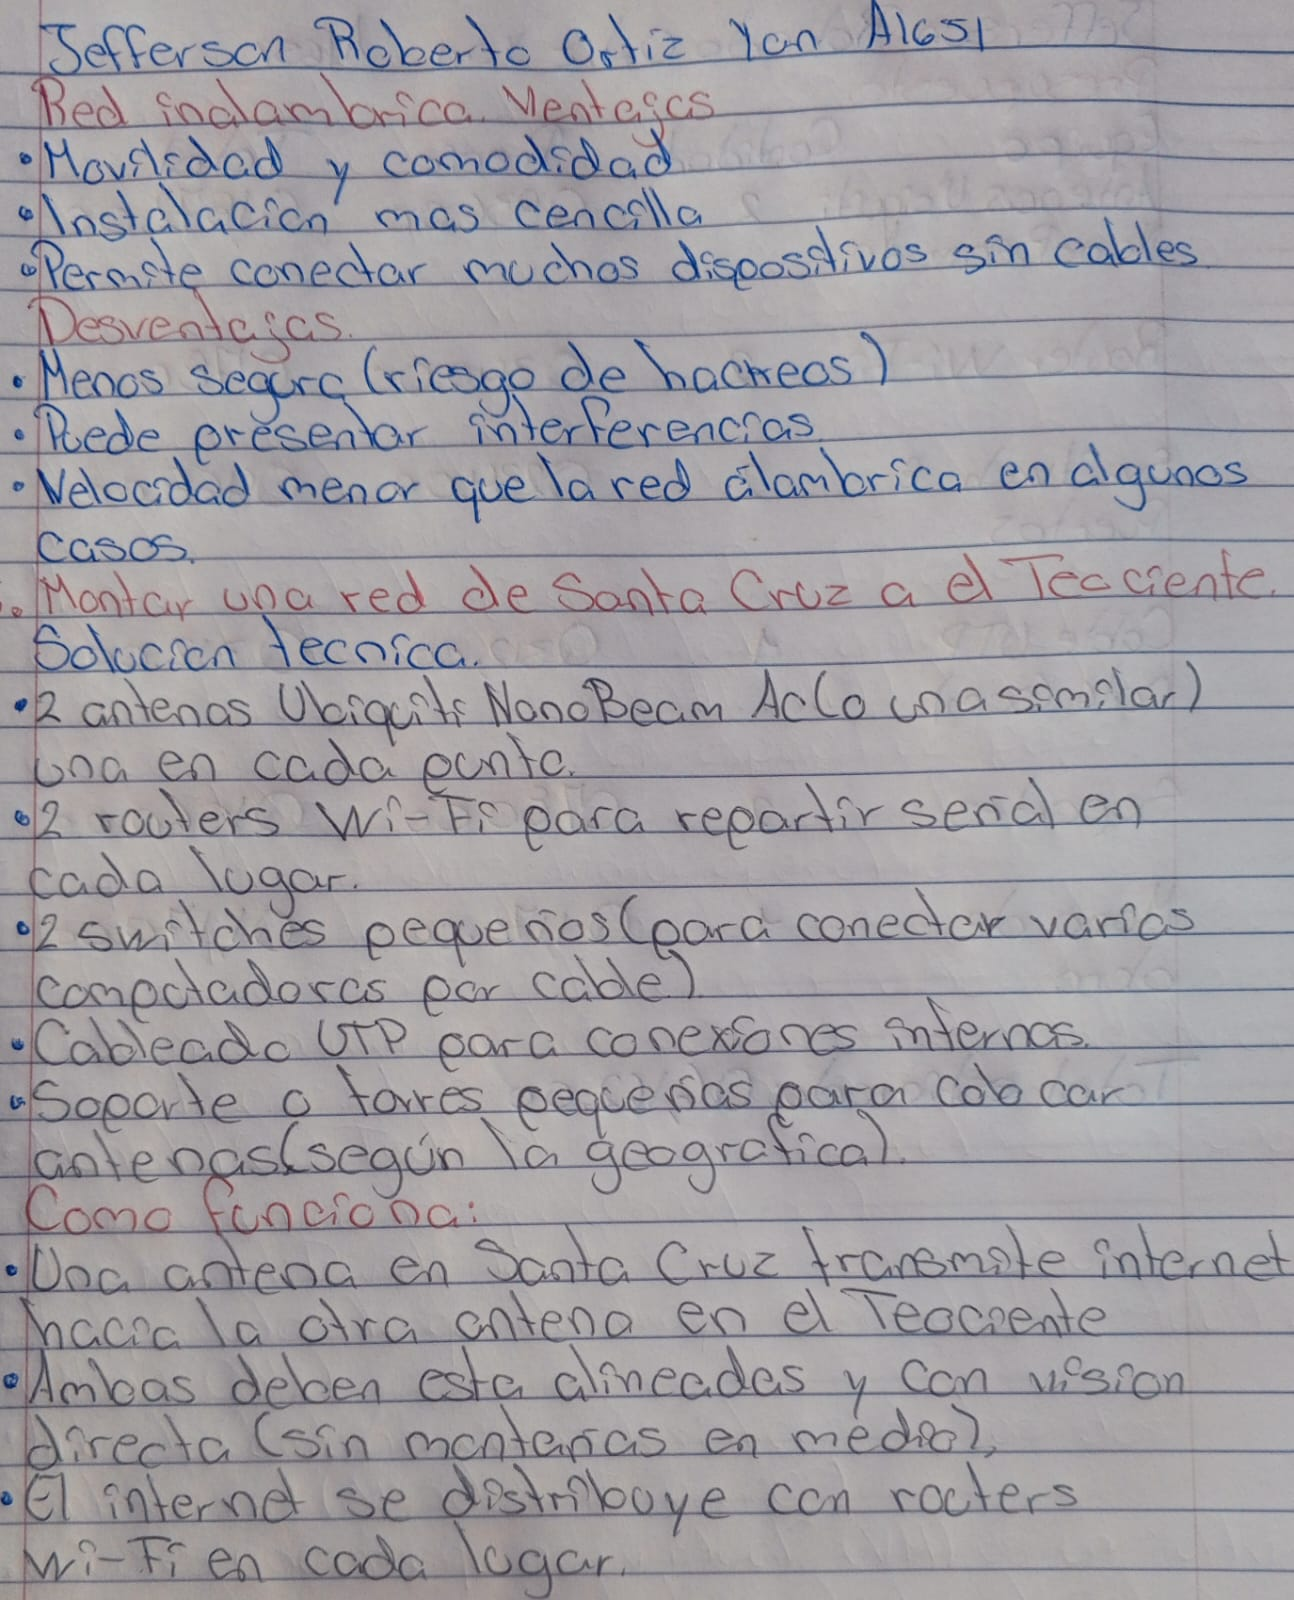 Jefferson Roberto Ortiz Yan A1651
Red inalambrica. Ventajas
• Movilidad y comodidad
• Instalacion mas cencilla
• Permite conectar muchos dispositivos sin cables
Desventajas.
• Menos segura (riesgo de hackeos)
• Puede presentar interferencias
• Velocidad menor que la red alambrica en algunos
casos.
• Montar una red de Santa Cruz a el Teociente.
Solucion tecnica.
• 2 antenas Ubiquiti NanoBeam Ac (o una similar)
una en cada punto.
• 2 routers Wi-Fi para repartir señal en
cada lugar.
• 2 switches pequeños (para conectar varios
computadoras por cable)
• Cableado UTP para conexiones internas.
• Soporte o torres pequeñas para colocar
antenas (según la geografica).
Como funciona:
• Una antena en Santa Cruz transmite internet
hacia la otra antena en el Teociente
• Ambas deben esta alineadas y con vision
directa (sin montañas en medio),
• El internet se distribuye con routers
Wi-Fi en cada lugar.